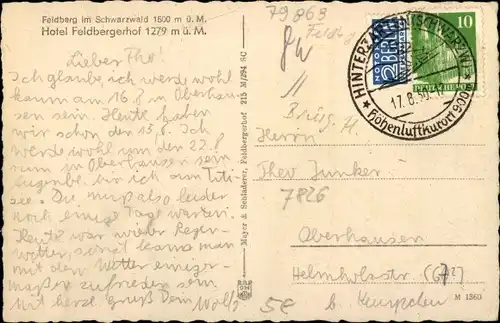 Feldberg im Schwarzwald 1500 m ü. M.
Hotel Feldbergerhof 1279 m ü. M.
Lieber Theo!
Ich glaube ich werde wohl
kaum am 16.8 in Oberhau
sen sein. Heute haben
wir schon den 15.8. Ich
werde wohl um den 22.8
rum in Oberhausen sein
bin ich am Titi-
see. Du mußt also leider
noch einige Tage warten.
Heute war wieder Regen-
wetter, sonst kann man
mit dem Wetter einiger-
maßen zufrieden sein
Mit herzl. Gruß Dein Wolf
Mayer & Schladerer, Feldbergerhof 215 M/294 SC
79869
NOTOPFER
2 BERLIN
10
HINTERZARTEN (SCHWARZW)
17.8.
Höhenluftkurort 900
Herrn
Theo Junker
7826
Oberhausen
Helmholzstr. (67
b. Kempchen
5€
M 1360